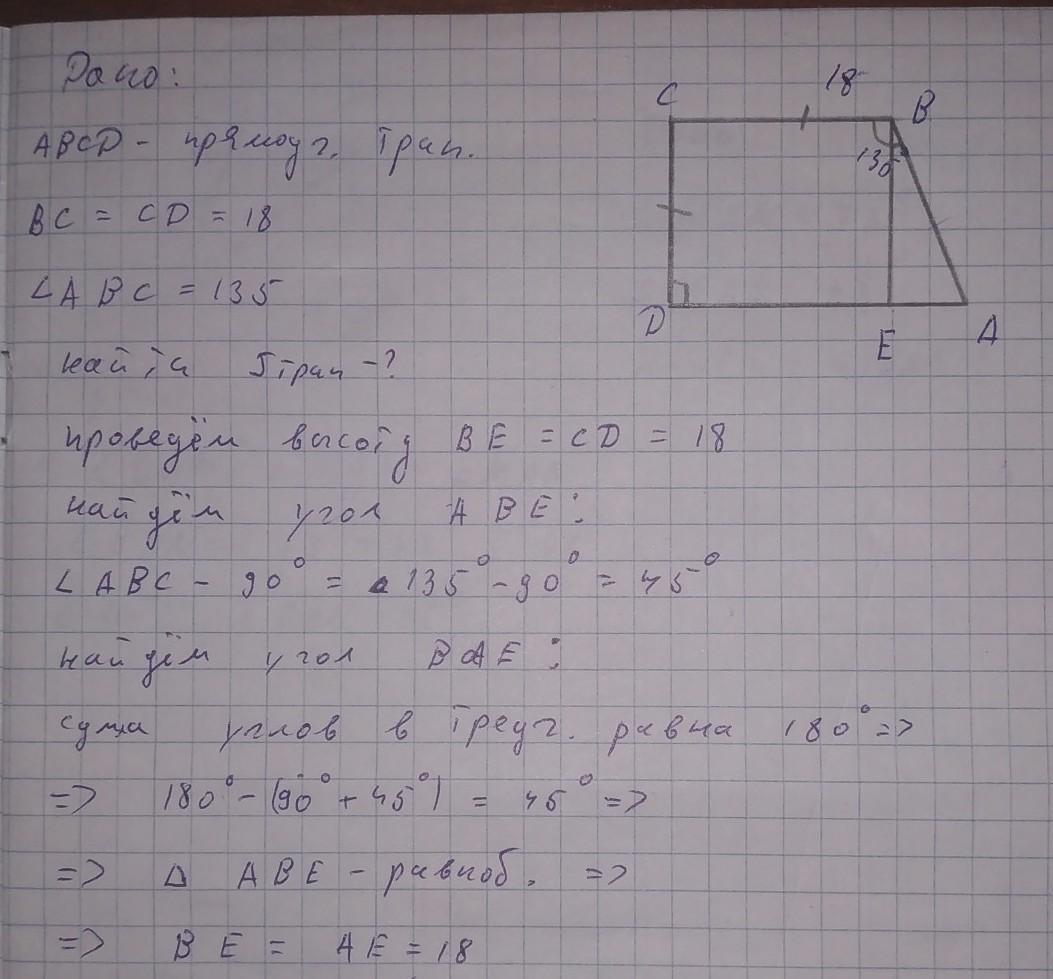 Дано:
ABCD - прямоуг. трап.
BC = CD = 18
∠ABC = 135
найти Sтрап -?
проведём высоту BE = CD = 18
найдём угол ABE:
∠ABC - 90° = 135° - 90° = 45°
найдём угол BAE:
сумма углов в треуг. равна 180° =>
=> 180° - (90° + 45°) = 45° =>
=> Δ ABE - равноб. =>
=> BE = AE = 18
18
C
B
135
D
E
A